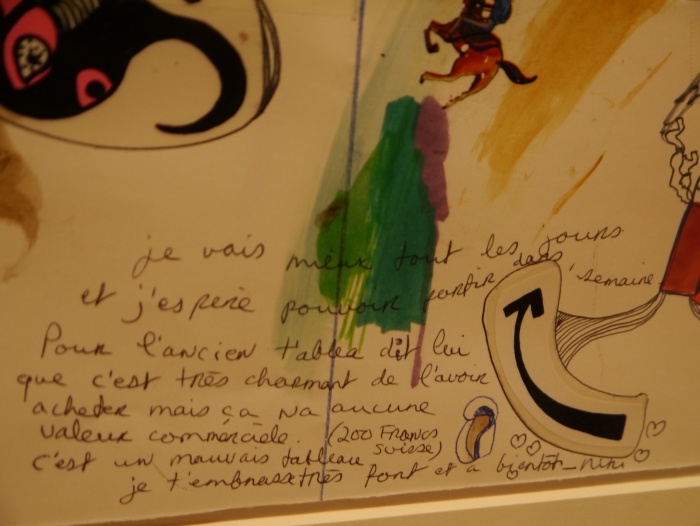 je vais mieux tout les jours
et j'espere pouvoir partir dans 1 semaine
Pour l'ancien tablea dit lui
que c'est très charmant de l'avoir
acheder mais ça na aucune
valeur commérciele. (200 Francs
Suisse)
c'est un mauvais tableau
je t'embrasse très fort et a bientôt_niki